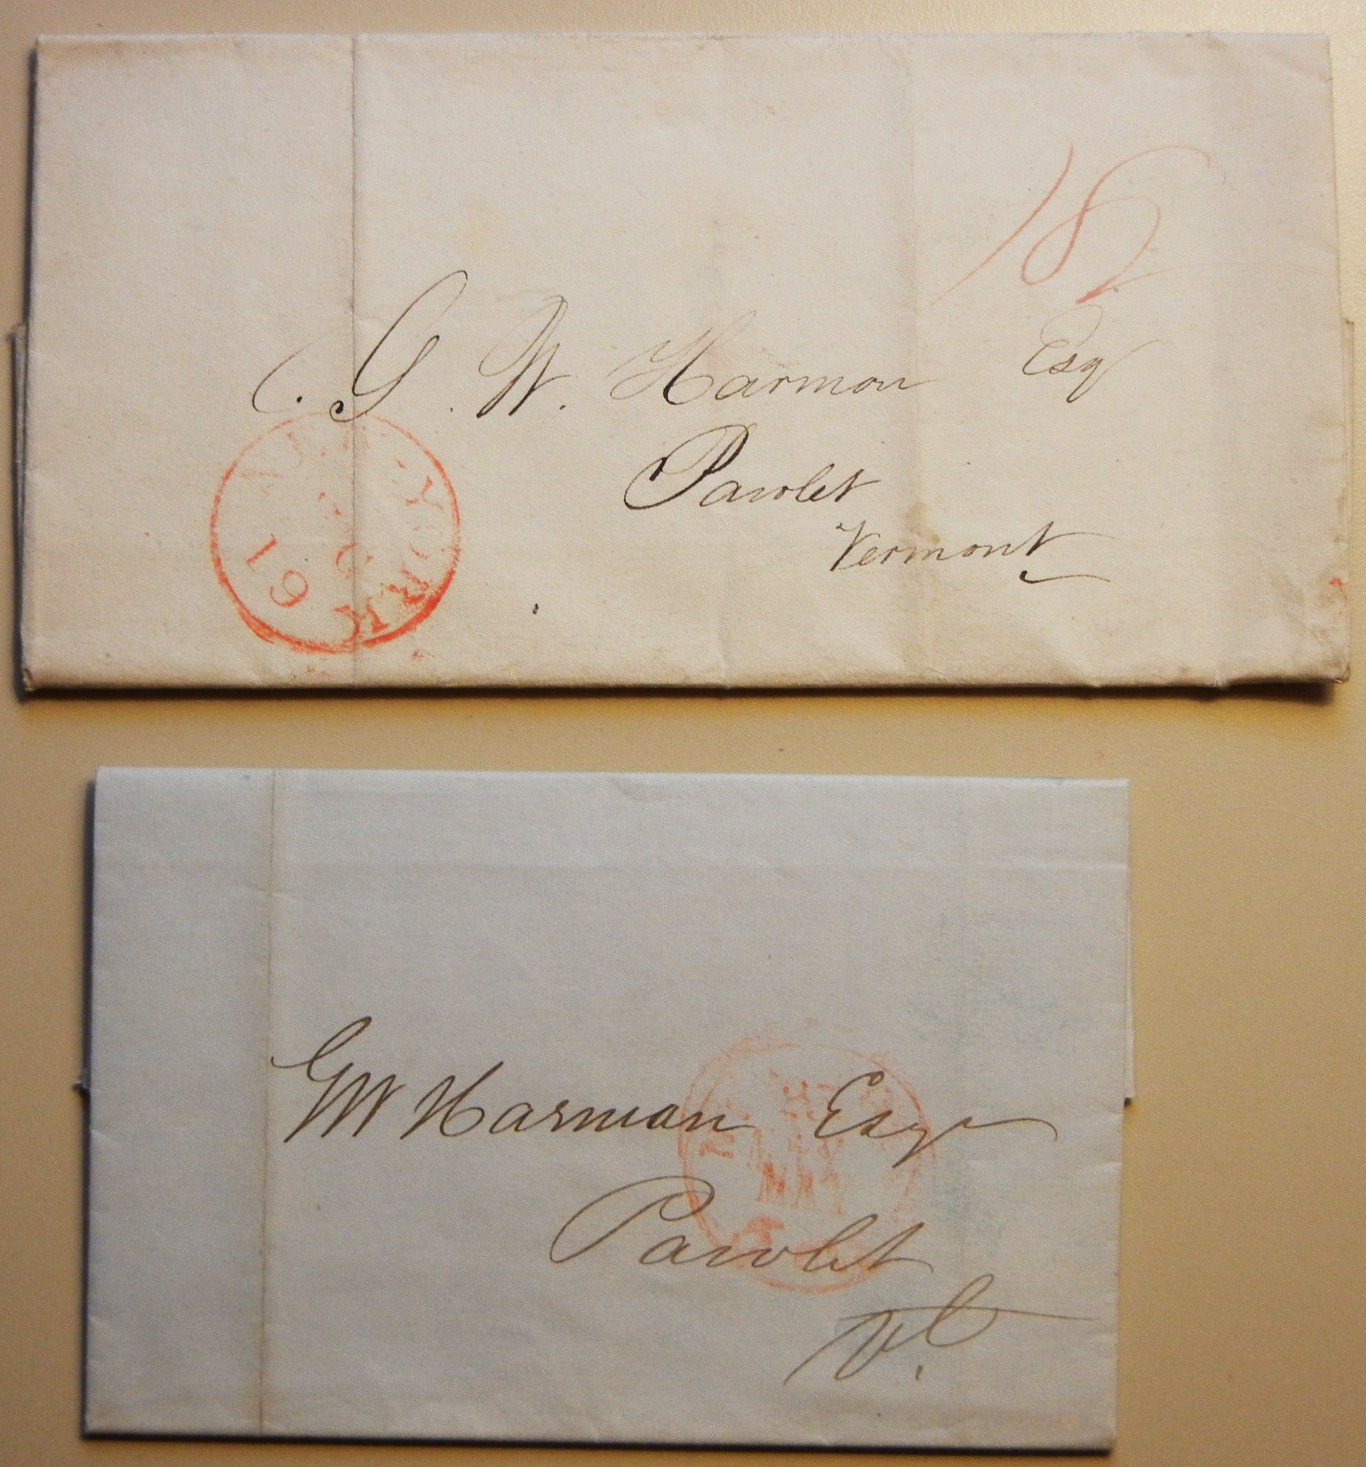 18¾
G. W. Harmon Esq
Pawlet
Vermont
NEW-YORK
19
GW Harman Esq
Pawlet
Vt.
MAY